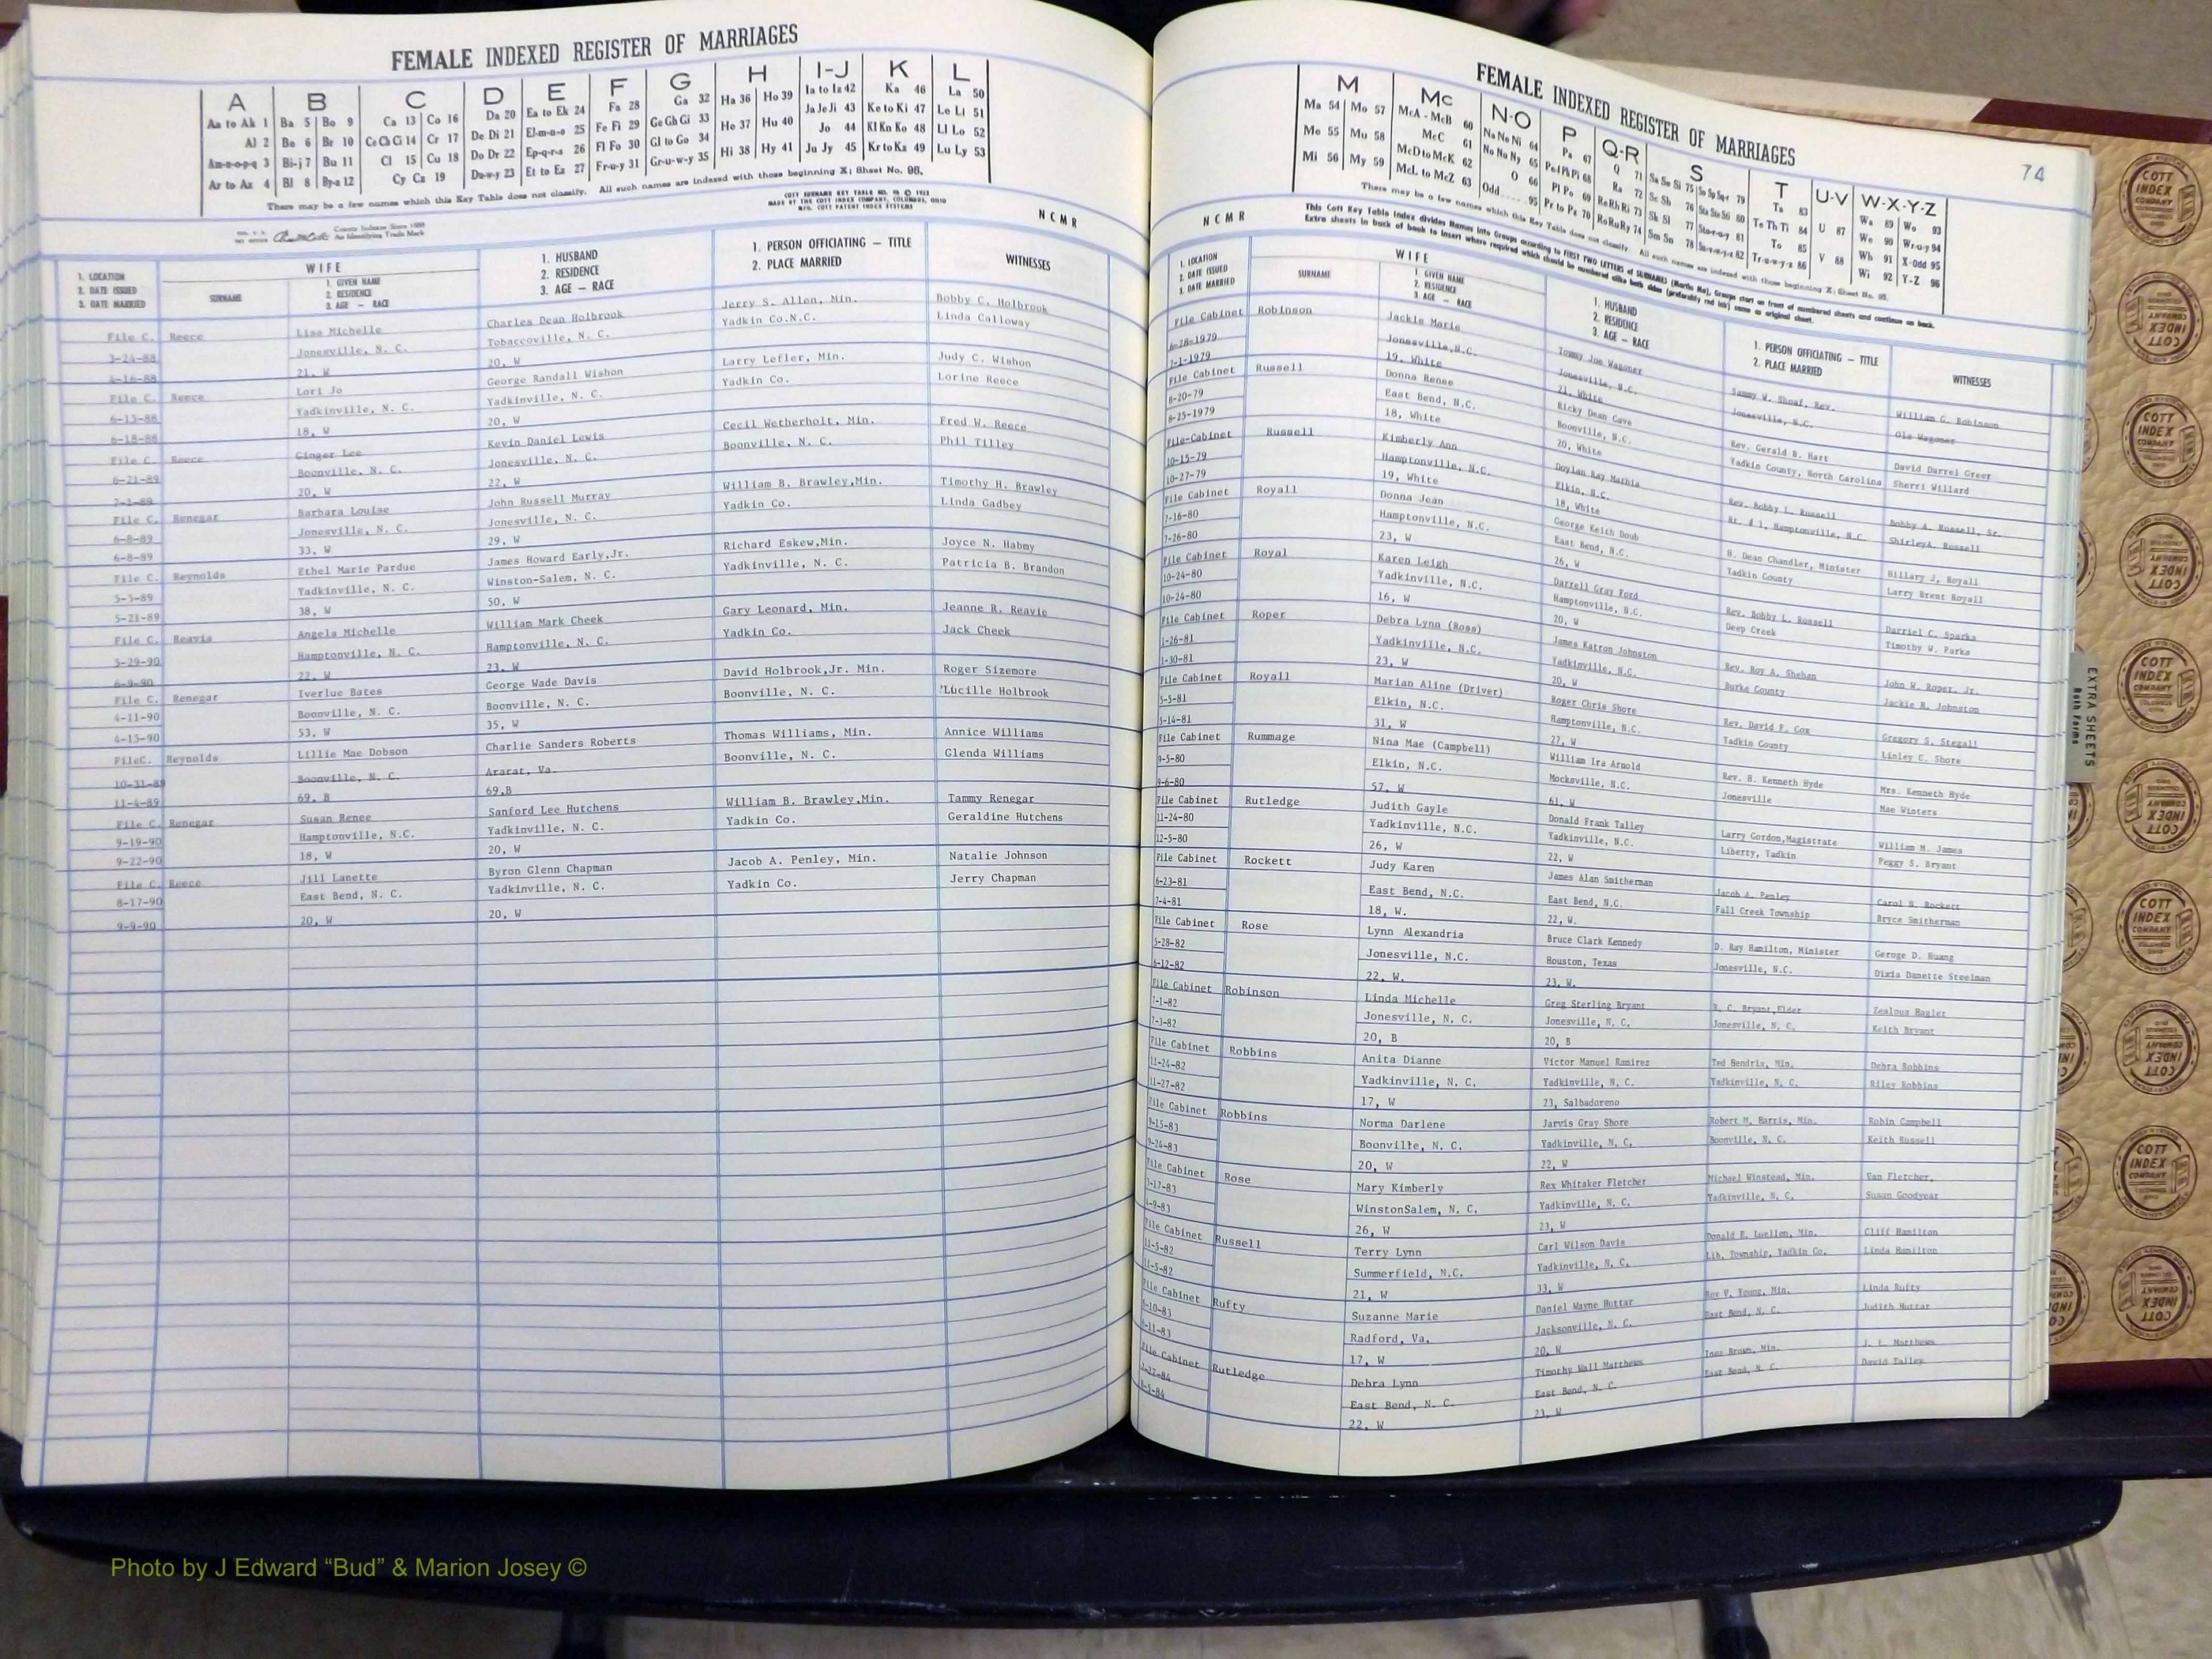 FEMALE INDEXED REGISTER OF MARRIAGES
A B C D E F G H I-J K L
Aa to Ak 1 Ba 5 Bo 9 Ca 13 Co 16 Da 20 Ea to Ek 24 Fa 28 Ga 32 Ha 36 Ho 39 Ia to Iz 42 Ka 46 La 50
Al 2 Be 6 Br 10 Ce Ch Ci 14 Cr 17 De Di 21 El-m-n-o 25 Fe Fi 29 Ge Gh Gi 33 He 37 Hu 40 Ja Je Ji 43 Ke to Ki 47 Le Li 51
Am-n-o-p-q 3 Bi-j 7 Bu 11 Cl 15 Cu 18 Do Dr 22 Ep-q-r-s 26 Fl Fo 30 Gl to Go 34 Hi 38 Hy 41 Jo 44 Kl Kn Ko 48 Ll Lo 52
Ar to Az 4 Bl 8 By-z 12 Cy Cz 19 Du-w-y 23 Et to Ez 27 Fr-u-y 31 Gr-u-w-y 35 Ju Jy 45 Kr to Kz 49 Lu Ly 53
There may be a few names which this Key Table does not classify. All such names are indexed with those beginning X; Sheet No. 95.
N C M R
1. LOCATION
2. DATE ISSUED
3. DATE MARRIED
WIFE
SURNAME
1. GIVEN NAME
2. RESIDENCE
3. AGE — RACE
1. HUSBAND
2. RESIDENCE
3. AGE — RACE
1. PERSON OFFICIATING — TITLE
2. PLACE MARRIED
WITNESSES
File C. Reece Lisa Michelle Charles Dean Holbrook Jerry S. Allen, Min. Bobby C. Holbrook
3-24-88 Jonesville, N. C. Tobaccoville, N. C. Yadkin Co.N.C. Linda Calloway
4-16-88 21, W 20, W
File C. Reece Lori Jo George Randall Wishon Larry Lefler, Min. Judy C. Wishon
6-15-88 Yadkinville, N. C. Yadkinville, N. C. Yadkin Co. Lorine Reece
6-18-88 18, W 20, W
File C. Reece Ginger Lee Kevin Daniel Lewis Cecil Wetherholt, Min. Fred W. Reece
6-21-89 Boonville, N. C. Jonesville, N. C. Boonville, N. C. Phil Tilley
7-1-89 20, W 22, W
File C. Renegar Barbara Louise John Russell Murray William B. Brawley,Min. Timothy H. Brawley
6-8-89 Jonesville, N. C. Jonesville, N. C. Yadkin Co. Linda Gadbey
6-8-89 33, W 29, W
File C. Reynolds Ethel Marie Pardue James Howard Early,Jr. Richard Eskew,Min. Joyce N. Habmy
5-3-89 Yadkinville, N. C. Winston-Salem, N. C. Yadkinville, N. C. Patricia B. Brandon
5-21-89 38, W 50, W
File C. Reavis Angela Michelle William Mark Cheek Gary Leonard, Min. Jeanne R. Reavis
5-29-90 Hamptonville, N. C. Hamptonville, N. C. Yadkin Co. Jack Cheek
6-9-90 22, W 23, W
File C. Renegar Iverlue Bates George Wade Davis David Holbrook,Jr. Min. Roger Sizemore
4-11-90 Boonville, N. C. Boonville, N. C. Boonville, N. C. Lucille Holbrook
4-15-90 53, W 35, W
FileC. Reynolds Lillie Mae Dobson Charlie Sanders Roberts Thomas Williams, Min. Annice Williams
10-31-89 Boonville, N. C. Ararat, Va. Boonville, N. C. Glenda Williams
11-4-89 69, B 69,B
File C. Renegar Susan Renee Sanford Lee Hutchens William B. Brawley,Min. Tammy Renegar
9-19-90 Hamptonville, N.C. Yadkinville, N. C. Yadkin Co. Geraldine Hutchens
9-22-90 18, W 20, W
File C. Reece Jill Lanette Byron Glenn Chapman Jacob A. Penley, Min. Natalie Johnson
8-17-90 East Bend, N. C. Yadkinville, N. C. Yadkin Co. Jerry Chapman
9-9-90 20, W 20, W
FEMALE INDEXED REGISTER OF MARRIAGES
74
M Mc N-O P Q-R S T U-V W-X-Y-Z
Ma 54 Mo 57 McA - McB 60 Na Ne Ni 64 Pa 67 Q 71 Sa Se Si 75 So Sp Sq-r 79 Ta 83 U 87 Wa 89 Wo 93
Me 55 Mu 58 McC 61 No Nu Ny 65 Pe Pf Ph Pi 68 Ra 72 Sc Sh 76 Sta Ste Sti 80 Te Th Ti 84 V 88 We 90 Wr-u-y 94
Mi 56 My 59 McD to McK 62 O 66 Pl Po 69 Re Rh Ri 73 Sk Sl 77 Sto-r-u-y 81 To 85 Wh 91 X-Odd 95
McL to McZ 63 Odd 95 Pr to Pz 70 Ro Ru Ry 74 Sm Sn 78 Su-v-w-y-z 82 Tr-u-w-y-z 86 Wi 92 Y-Z 96
There may be a few names which this Key Table does not classify. All such names are indexed with those beginning X; Sheet No. 95.
This Cott Key Table Index divides Names into Groups according to FIRST TWO LETTERS of SURNAMES (Martin Ma), Groups start on front of numbered sheets and continue on back.
Extra sheets in back of book to insert where required which should be numbered alike both sides (preferably red ink) same as original sheet.
N C M R
1. LOCATION
2. DATE ISSUED
3. DATE MARRIED
WIFE
SURNAME
1. GIVEN NAME
2. RESIDENCE
3. AGE — RACE
1. HUSBAND
2. RESIDENCE
3. AGE — RACE
1. PERSON OFFICIATING — TITLE
2. PLACE MARRIED
WITNESSES
File Cabinet Robinson Jackie Marie Tommy Joe Wagoner Sammy W. Shoaf, Rev. William G. Robinson
6-28-1979 Jonesville,N.C. Jonesville, N.C. Jonesville, N.C. Ola Wagoner
7-1-1979 19, White 21, White
File Cabinet Russell Donna Renee Ricky Dean Cave Rev. Gerald B. Hart David Darrel Greer
8-20-79 East Bend, N.C. Boonville, N.C. Yadkin County, North Carolina Sherri Willard
8-25-1979 18, White 20, White
File-Cabinet Russell Kimberly Ann Doylan Ray Mathis Rev. Bobby L. Russell Bobby A. Russell, Sr.
10-15-79 Hamptonville, N.C. Elkin, N.C. Rt. # 1, Hamptonville, N.C. ShirleyA. Russell
10-27-79 19, White 18, White
File Cabinet Royall Donna Jean George Keith Doub H. Dean Chandler, Minister Billary J, Royall
7-16-80 Hamptonville, N.C. East Bend, N.C. Yadkin County Larry Brent Royall
7-26-80 23, W 26, W
File Cabinet Royal Karen Leigh Darrell Gray Ford Rev. Bobby L. Russell Darriel C. Sparks
10-24-80 Yadkinville, N.C. Hamptonville, N.C. Deep Creek Timothy W. Parks
10-24-80 16, W 20, W
File Cabinet Roper Debra Lynn (Ross) James Katron Johnston Rev. Roy A. Shehan John W. Roper, Jr.
1-26-81 Yadkinville, N.C. Yadkinville, N.C. Burke County Jackie R. Johnston
1-30-81 23, W 20, W
File Cabinet Royall Marian Aline (Driver) Roger Chris Shore Rev. David F. Cox Gregory S. Stegall
5-5-81 Elkin, N.C. Hamptonville, N.C. Yadkin County Linley C. Shore
5-14-81 31, W 27, W
File Cabinet Rummage Nina Mae (Campbell) William Ira Arnold Rev. B. Kenneth Hyde Mrs. Kenneth Hyde
9-5-80 Elkin, N.C. Mocksville, N.C. Jonesville Mae Winters
9-6-80 57, W 61, W
File Cabinet Rutledge Judith Gayle Donald Frank Talley Larry Gordon,Magistrate William M. James
11-24-80 Yadkinville, N.C. Yadkinville, N.C. Liberty, Yadkin Peggy S. Bryant
12-5-80 26, W 22, W
File Cabinet Rockett Judy Karen James Alan Smitherman Jacob A. Penley Carol S. Rockett
6-23-81 East Bend, N.C. East Bend, N.C. Fall Creek Township Bryce Smitherman
7-4-81 18, W. 22, W.
File Cabinet Rose Lynn Alexandria Bruce Clark Kennedy D. Ray Hamilton, Minister Geroge D. Huang
5-28-82 Jonesville, N.C. Houston, Texas Jonesville, N.C. Dixia Danette Steelman
6-12-82 22, W. 23, W.
File Cabinet Robinson Linda Michelle Greg Sterling Bryant R. C. Bryant,Elder Zealous Hagler
7-1-82 Jonesville, N. C. Jonesville, N. C. Jonesville, N. C. Keith Bryant
7-3-82 20, B 20, B
File Cabinet Robbins Anita Dianne Victor Manuel Ramirez Ted Hendrix, Min. Debra Robbins
11-24-82 Yadkinville, N. C. Yadkinville, N. C. Yadkinville, N. C. Riley Robbins
11-27-82 17, W 23, Salbadoreno
File Cabinet Robbins Norma Darlene Jarvis Gray Shore Robert M. Harris, Min. Robin Campbell
9-15-83 Boonville, N. C. Yadkinville, N. C. Boonville, N. C. Keith Russell
9-24-83 20, W 22, W
File Cabinet Rose Mary Kimberly Rex Whitaker Fletcher Michael Winstead, Min. Van Fletcher,
3-17-83 WinstonSalem, N. C. Yadkinville, N. C. Yadkinville, N. C. Susan Goodyear
4-9-83 26, W 23, W
File Cabinet Russell Terry Lynn Carl Wilson Davis Donald E. Luellen, Min. Cliff Hamilton
11-5-82 Summerfield, N.C. Yadkinville, N. C. Lib. Township, Yadkin Co. Linda Hamilton
11-5-82 21, W 33, W
File Cabinet Rufty Suzanne Marie Daniel Wayne Huttar Roy V. Young, Min. Linda Rufty
6-10-83 Radford, Va. Jacksonville, N. C. East Bend, N. C. Judith Huttar
6-11-83 17, W 20, W
File Cabinet Rutledge Debra Lynn Timothy Wall Matthews Ines Brown, Min. J. L. Matthews
East Bend, N. C. East Bend, N. C. East Bend, N. C. David Talley
22, W 23, W
EXTRA SHEETS
Both Forms
COTT INDEX COMPANY
Photo by J Edward “Bud” & Marion Josey ©